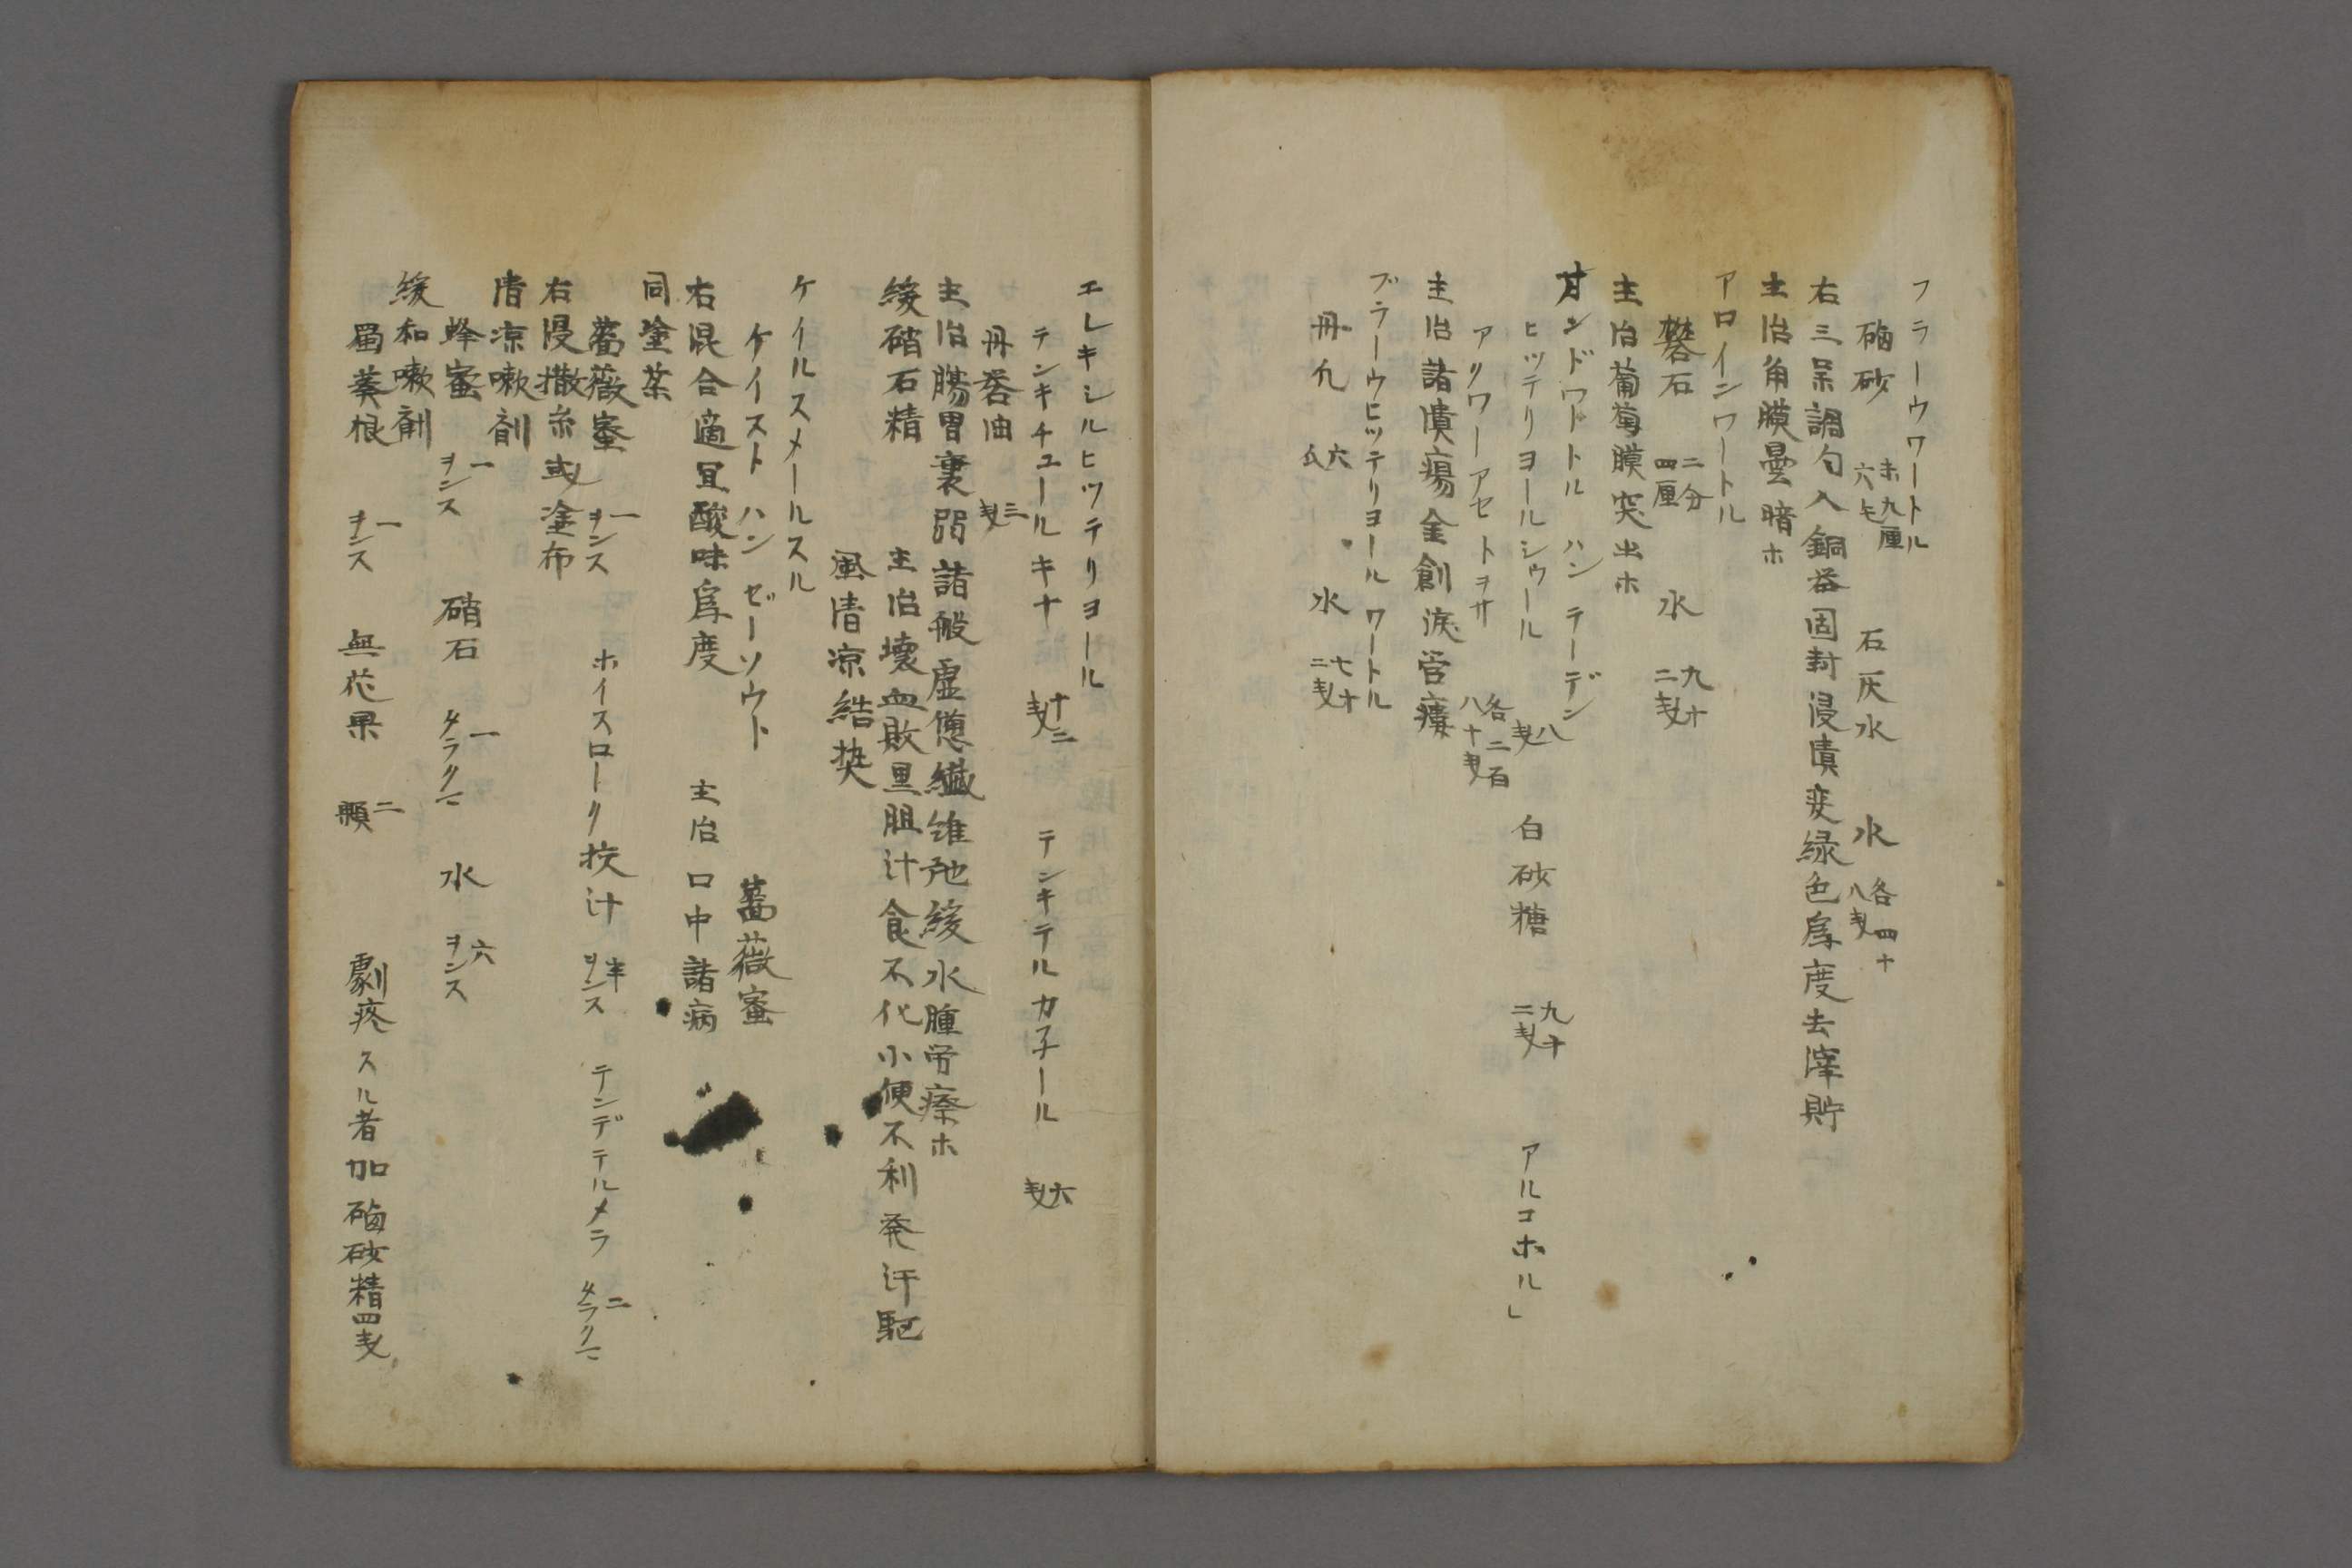 フラーウワートル
磠砂 ホ九厘六毛 石灰水 水 各四十八刄
右三味調匀入銅器固封浸漬変緑色為度去滓貯
主治角膜曇暗ホ
アロインワートル
礬石 二分四厘 水 九十二刄
主治葡萄膜突出ホ
ヲンドワートル ハン テーデン
ヒツテリヨールシウール 八刄 白砂糖 九十二刄 アルコホル」
アリワーアセトヲサ 各二百八十刄
主治諸潰瘍金創涙管瘻
ブラーウヒツテリヨール ワートル
丹凢 六 水 七十二刄
エレキシルヒツテリヨール
テンキチユール キナ 十二刄 テンキテル カ子ール 六刄
丹礬油 三刄
主治腸胃衰弱諸般虚憊繊維弛緩水腫労瘵ホ
緩硝石精 主治壊血敗黒胆汁食不化小便不利発汗駆
風清凉結㷔
ケイルスメールスル
ケイスト ハン ゼーソウト 薔薇蜜
右混合適宜酸味為度 主治口中諸病
同塗茱
薔薇蜜 一ヲンス ホイスローク挍汁 半ヲンス テンデテルメラ 二タラクニ
右浸撒糸或塗布
清凉嗽剤
蜂蜜 一ヲンス 硝石 一タラクニ 水 六ヲンス
緩和嗽剤
蜀葵根 一ヲンス 無花果 二顆 劇疼スル者加磠砂精四刄